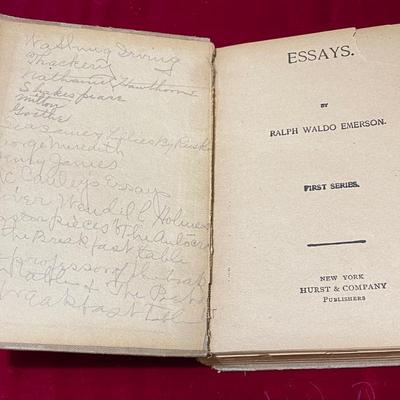 Washing Irving
Thackery
Nathaniel Hawthorne
Shakespeare
Milton
Goethe
Lilies By Ruskin
George Meredith
Henry James
Essay
Wendell Holmes
of the Autocra
the Breakfast table
professor of the
table & The Poet
breakfast table
ESSAYS.
BY
RALPH WALDO EMERSON.
FIRST SERIES.
NEW YORK
HURST & COMPANY
PUBLISHERS